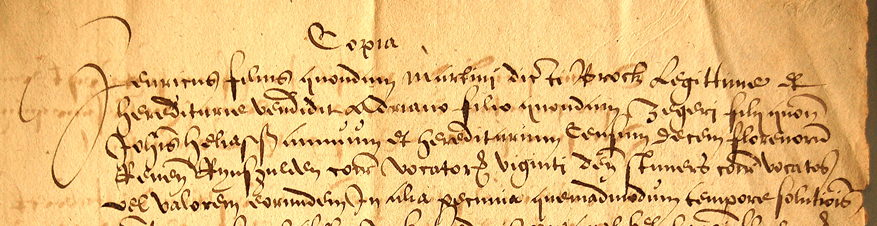 Copia
Henricus filius quondam Martini dicti Brock legittime et
hereditarie vendidit Adriano filio quondam Zegeri filii quon
Johis heliass annuum et hereditarium Censum decem florenorum
Renen Rynsgulden coiter vocatorum viginti den stuvers coiter vocatos
vel valorem eorundem In alia pecunia quemadmodum tempore solutionis